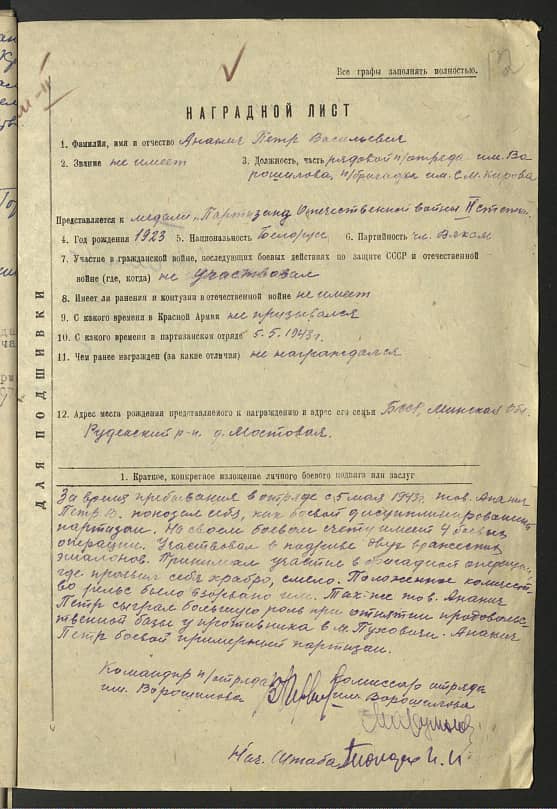 Все графы заполнять полностью.
НАГРАДНОЙ ЛИСТ
1. Фамилия, имя и отчество Ананич Петр Васильевич
2. Звание не имеет 3. Должность, часть рядовой п/отряда им. Во
рошилова, п/бригады им. С.М. Кирова
Представляется к медали "Партизану Отечественной войны" II степени
4. Год рождения 1923 5. Национальность Белорус 6. Партийность чл. Влксм
7. Участие в гражданской войне, последующих боевых действиях по защите СССР и отечественной
войне (где, когда) не участвовал
8. Имеет ли ранения и контузии в отечественной войне не имеет
9. С какого времени в Красной Армии не призывался
10. С какого времени в партизанском отряде 5.5.1943г.
11. Чем ранее награжден (за какие отличия) не награждался
12. Адрес места рождения представляемого к награждению и адрес его семьи БССР, Минская обл.
Руденский р-н. д. Мостовая.
ДЛЯ ПОДШИВКИ
1. Краткое, конкретное изложение личного боевого подвига или заслуг
За время пребывания в отряде с 5 мая 1943г. тов. Ананич
Петр В. показал себя, как боевой дисциплинированный
партизан. На своем боевом счету имеет 4 боевых
операции. Участвовал в подрыве двух вражеских
эшелонов. Принимал участие в бригадной операции,
где проявил себя храбро, смело. Положенное количест
во рельс было взорвано им. Так-же тов. Ананич
Петр сыграл большую роль при отнятии продовольс
твенной базы у противника в м. Пуховичи. Ананич
Петр боевой примерный партизан.
Командир п/отряда
им. Ворошилова
Комиссар отряда
им. Ворошилова
Нач. Штаба